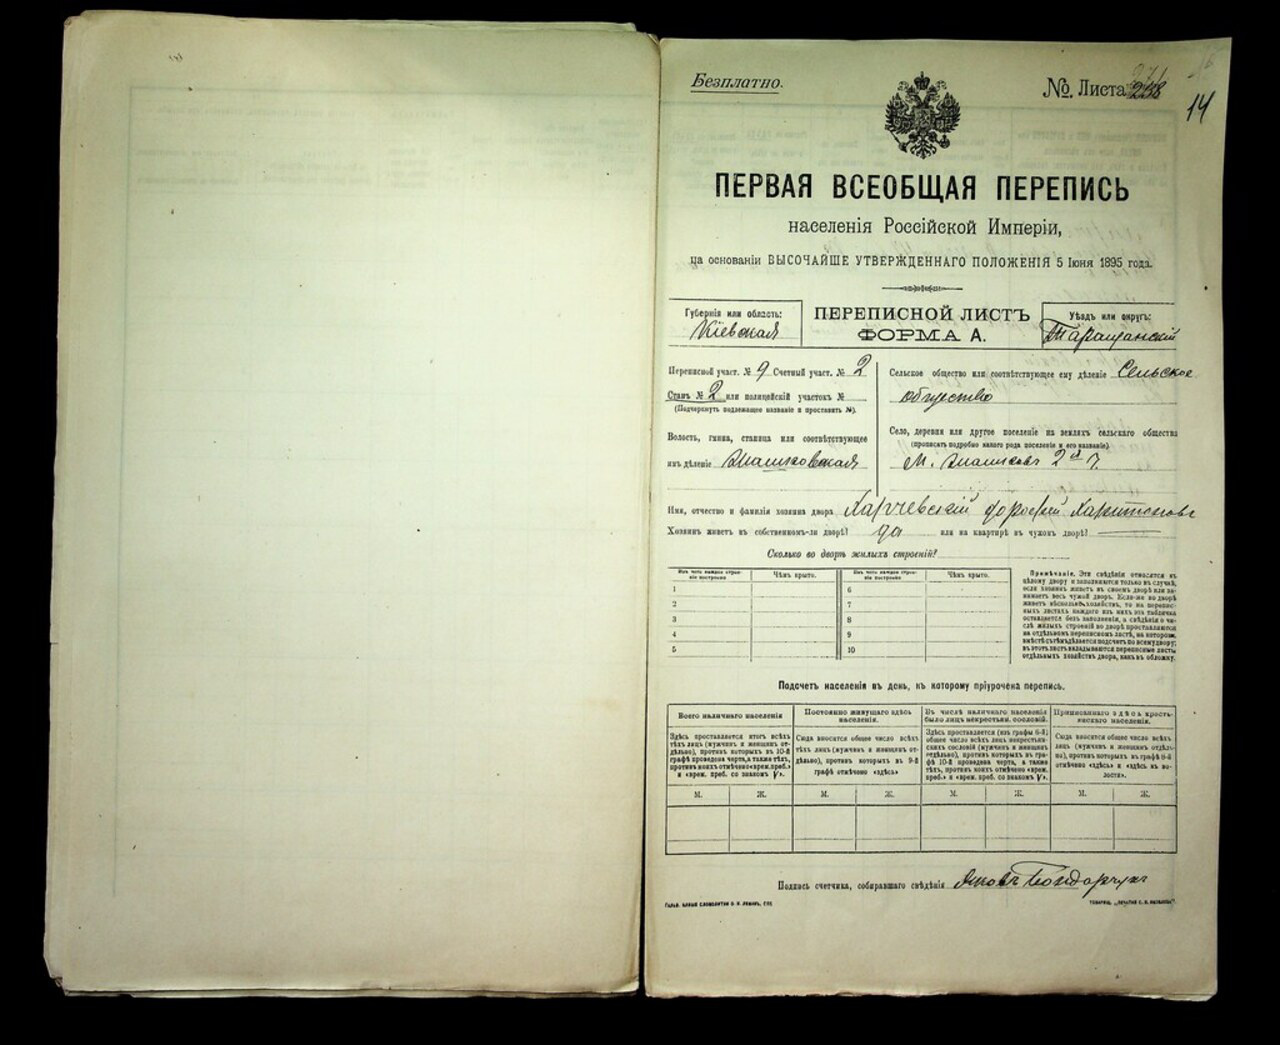 Безплатно.
№. Листа 238
14
ПЕРВАЯ ВСЕОБЩАЯ ПЕРЕПИСЬ
населенія Россійской Имперіи,
на основаніи ВЫСОЧАЙШЕ УТВЕРЖДЕННАГО ПОЛОЖЕНІЯ 5 Іюня 1895 года.
Губернія или область:
Кіевская
ПЕРЕПИСНОЙ ЛИСТЪ
ФОРМА А.
Уѣздъ или округъ:
Таращанскій
Переписной участ. № 9 Счетный участ. № 2
Станъ № 2 или полицейскій участокъ №
(Подчеркнуть подлежащее названіе и проставить №).
Волость, гмина, станица или соотвѣтствующее
имъ дѣленіе
Сельское общество или соотвѣтствующее ему дѣленіе Сельское
общество
Село, деревня или другое поселеніе на земляхъ сельскаго общества
(прописать подробно какого рода поселеніе и его названіе).
М. 2й ч.
Имя, отчество и фамилія хозяина двора Харчевскій Дорофей Харитоновъ
Хозяинъ живетъ въ собственномъ-ли дворѣ? да или на квартирѣ въ чужомъ дворѣ?
Сколько во дворѣ жилыхъ строеній?
Изъ чего каждое строеніе построено
Чѣмъ крыто.
Изъ чего каждое строеніе построено
Чѣмъ крыто.
1 6
2 7
3 8
4 9
5 10
Примѣчаніе. Эти свѣдѣнія относятся къ
цѣлому двору и заполняются только въ случаѣ,
если хозяинъ живетъ въ своемъ дворѣ или за-
нимаетъ весь чужой дворъ. Если-же во дворѣ
живетъ нѣсколько хозяйствъ, то на перепис-
ныхъ листахъ каждаго изъ нихъ эта табличка
оставляется безъ заполненія, а свѣдѣнія о чи-
слѣ жилыхъ строеній во дворѣ проставляются
на отдѣльномъ переписномъ листѣ, на которомъ
вмѣстѣ съ тѣмъ дѣлается подсчетъ по всему двору;
въ этотъ листъ вкладываются переписные листы
отдѣльныхъ хозяйствъ двора, какъ въ обложку.
Подсчетъ населенія въ день, къ которому пріурочена перепись.
Всего наличнаго населенія
Здѣсь проставляется итогъ всѣхъ
тѣхъ лицъ (мужчинъ и женщинъ от-
дѣльно), противъ которыхъ въ 10-й
графѣ проведена черта, а также тѣхъ,
противъ коихъ отмѣчено «врем. преб.»
и «врем. преб. со знакомъ V».
Постоянно живущаго здѣсь
населенія.
Сюда вносится общее число всѣхъ
тѣхъ лицъ (мужчинъ и женщинъ от-
дѣльно), противъ которыхъ въ 9-й
графѣ отмѣчено «здѣсь»
Въ числѣ наличнаго населенія
было лицъ некрестьян. сословій.
Здѣсь проставляется (изъ графы 6-й)
общее число всѣхъ лицъ некрестьян-
скихъ сословій (мужчинъ и женщинъ
отдѣльно), противъ которыхъ въ гра-
фѣ 10-й проведена черта, а также
тѣхъ, противъ коихъ отмѣчено «врем.
преб.» и «врем. преб. со знакомъ V».
Приписаннаго здѣсь кресть-
янскаго населенія.
Сюда вносится общее число всѣхъ
лицъ (мужчинъ и женщинъ отдѣль-
но), противъ которыхъ въ графѣ 8-й
отмѣчено «здѣсь» и «здѣсь въ во-
лости».
М. Ж. М. Ж. М. Ж. М. Ж.
Подпись счетчика, собиравшаго свѣдѣнія Яковъ Бондарчукъ